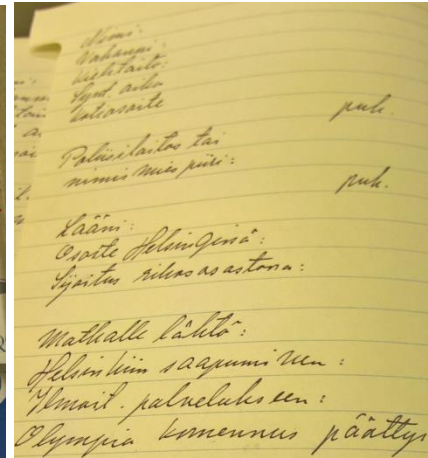 Nimi:
Vakanssi:
Kielitaito:
Synt. aika
Kotiosoite puh.
Poliisilaitos tai
nimismies piiri:
puh.
Lääni:
Osoite Helsingissä:
Sijoitus rikosasastona:
Matkalle lähtö:
Helsinkiin saapuminen:
Ilmoit. palvelukseen:
Olympia komennus päättys